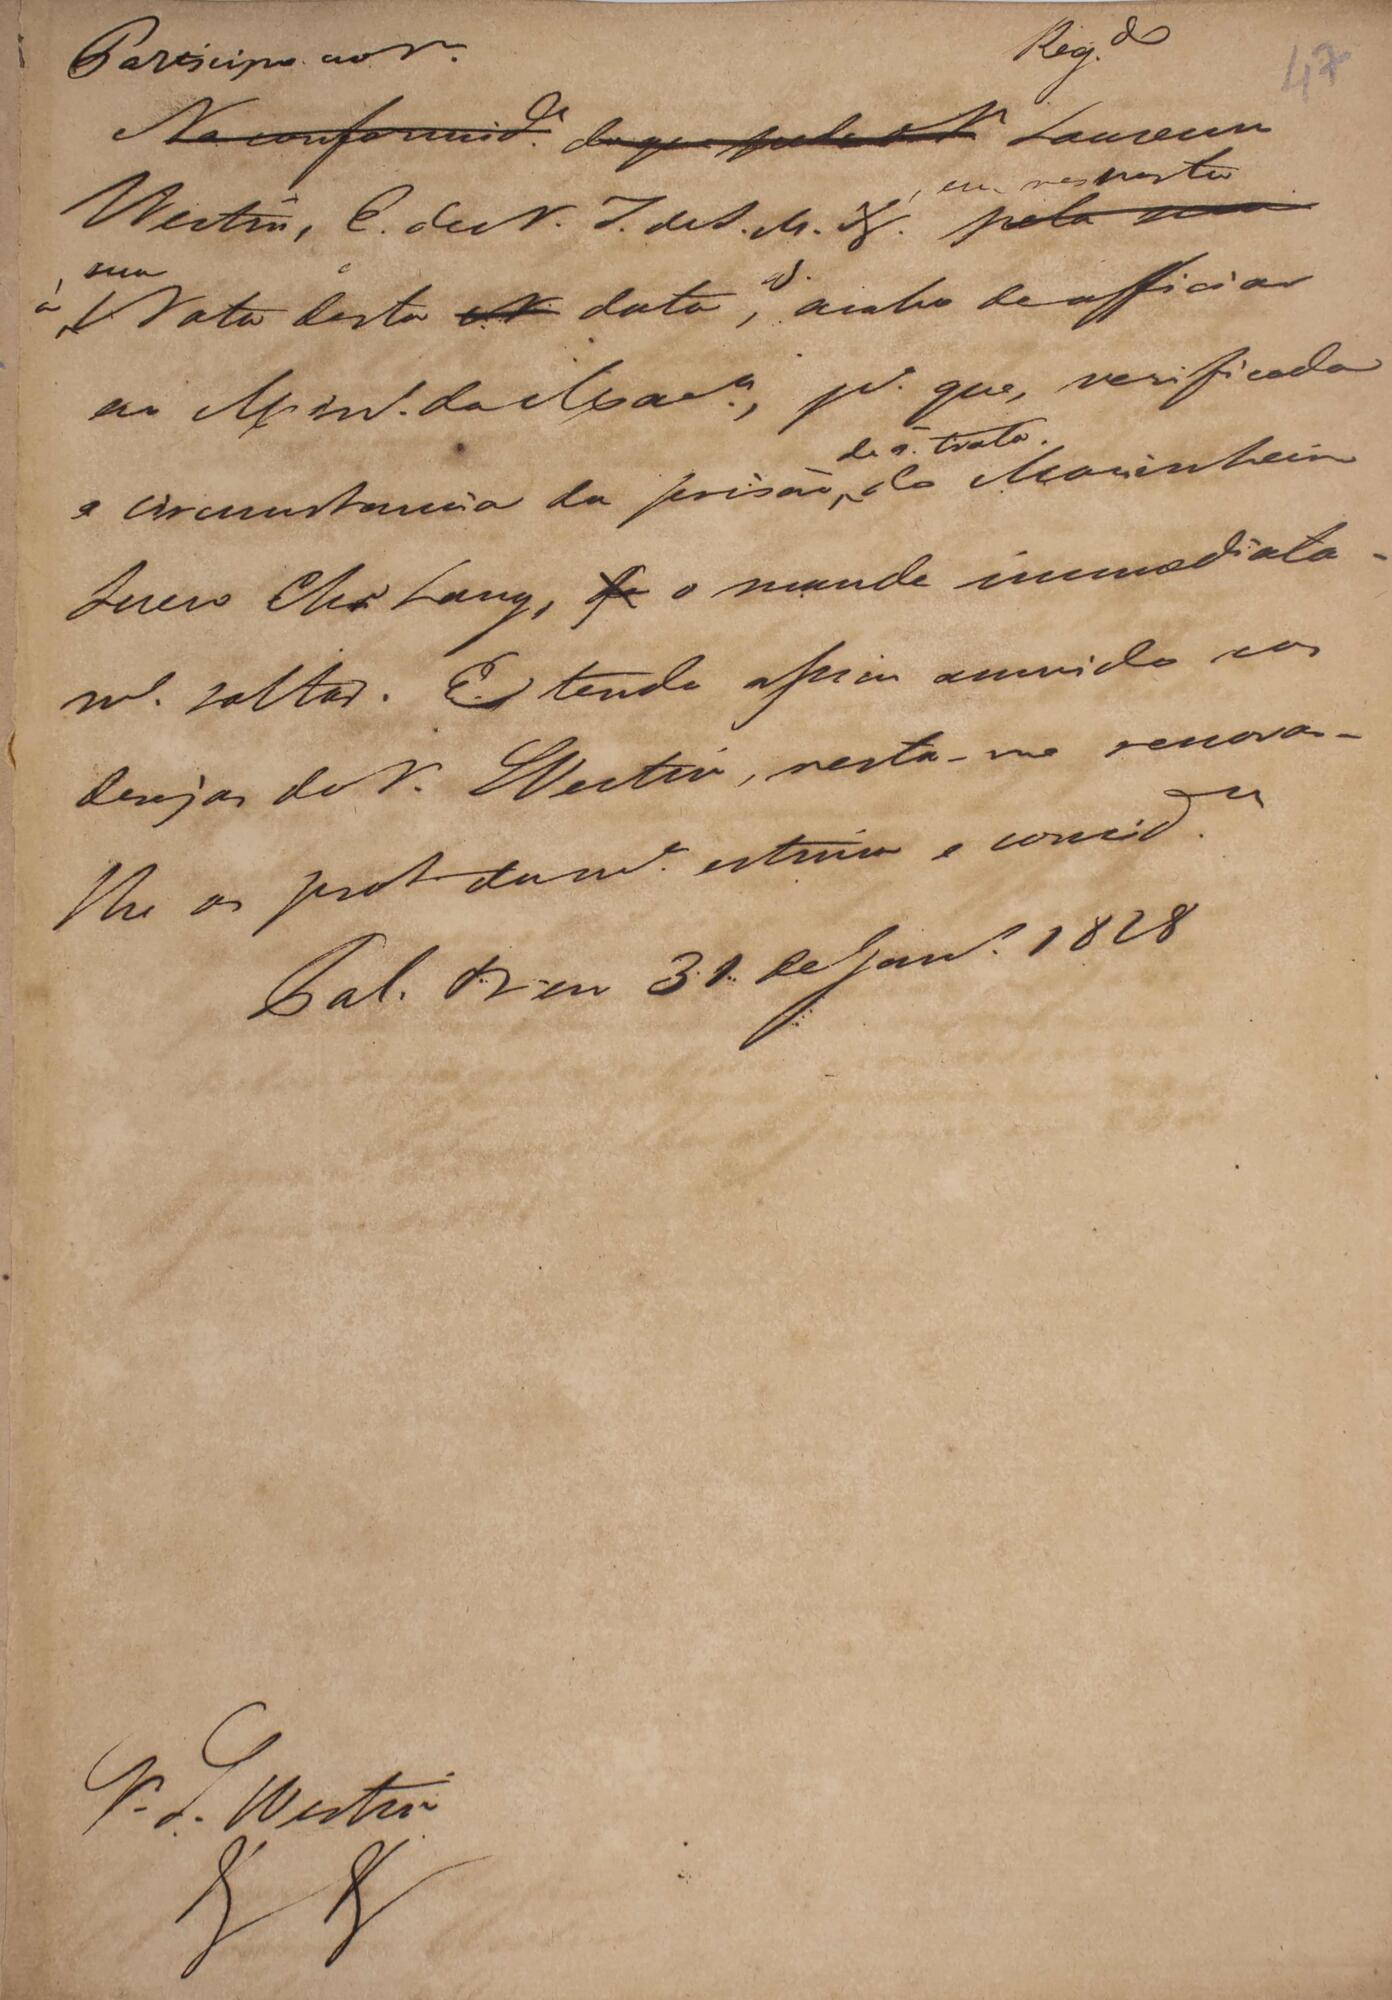 Participo ao Sr.
Reg.do
47
Na conformid.e do que pede o Sr. Lourenço
Westin, E. de N. I. de S. M. &. em resposta
pela sua
à sua Nota desta data, acabo de officiar
ao Min.o da Mar.a, p.a que, verificada
a circumstancia da prisão, de q. trata, do Marinheiro
Sueco Chr Lang, o mande immediata-
m.e soltar. E tendo assim annuido aos
desejos do Sr. Westin, resta-me renovar-
lhe os prot. da m.a estima e consid.am
Pal. em 31 de Jan.o 1828
Sr. L. Westin